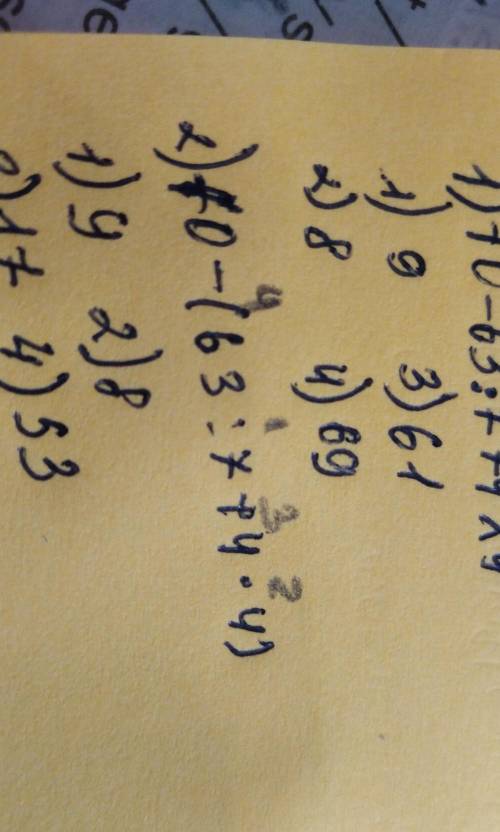 1) 70-63:7+4×4
1) 9 3) 61
2) 8 4) 69
4 3 2
2) 70-(63:7+4·4)
1) 9 2) 8
17 4) 53